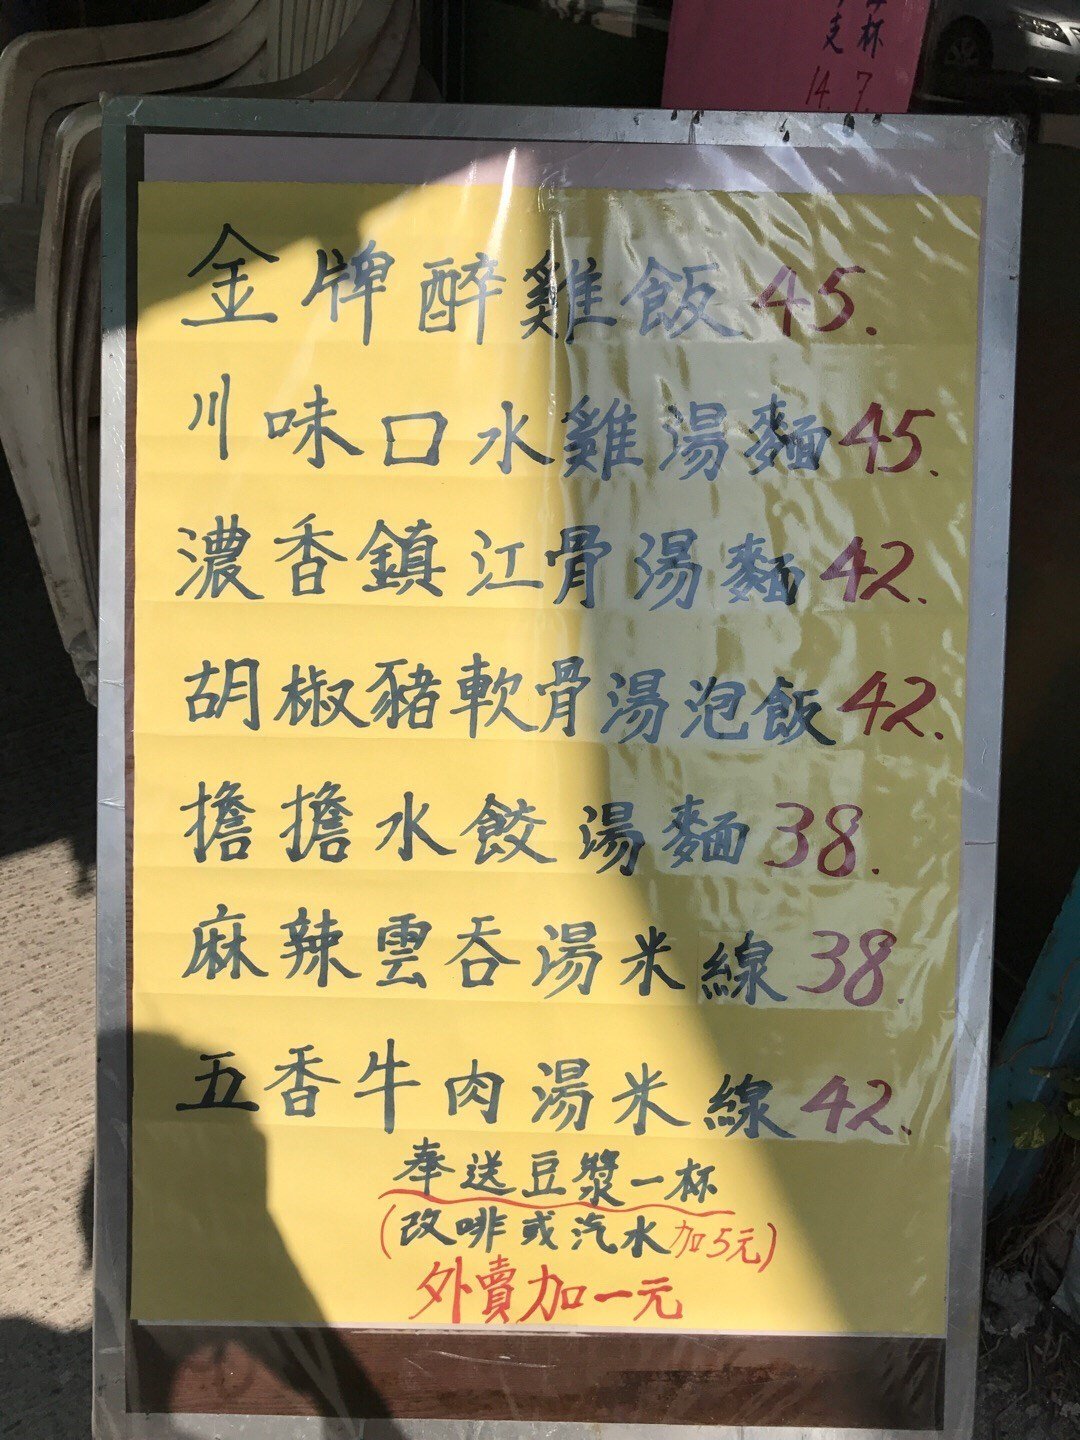 杯
7.
克
14.
金牌醉雞飯45.
川味口水雞湯麵45.
濃香鎮江骨湯麵42.
胡椒豬軟骨湯泡飯42.
擔擔水餃湯麵38.
麻辣雲吞湯米線38.
五香牛肉湯米線42.
奉送豆漿一杯
(改啡或汽水加5元)
外賣加一元